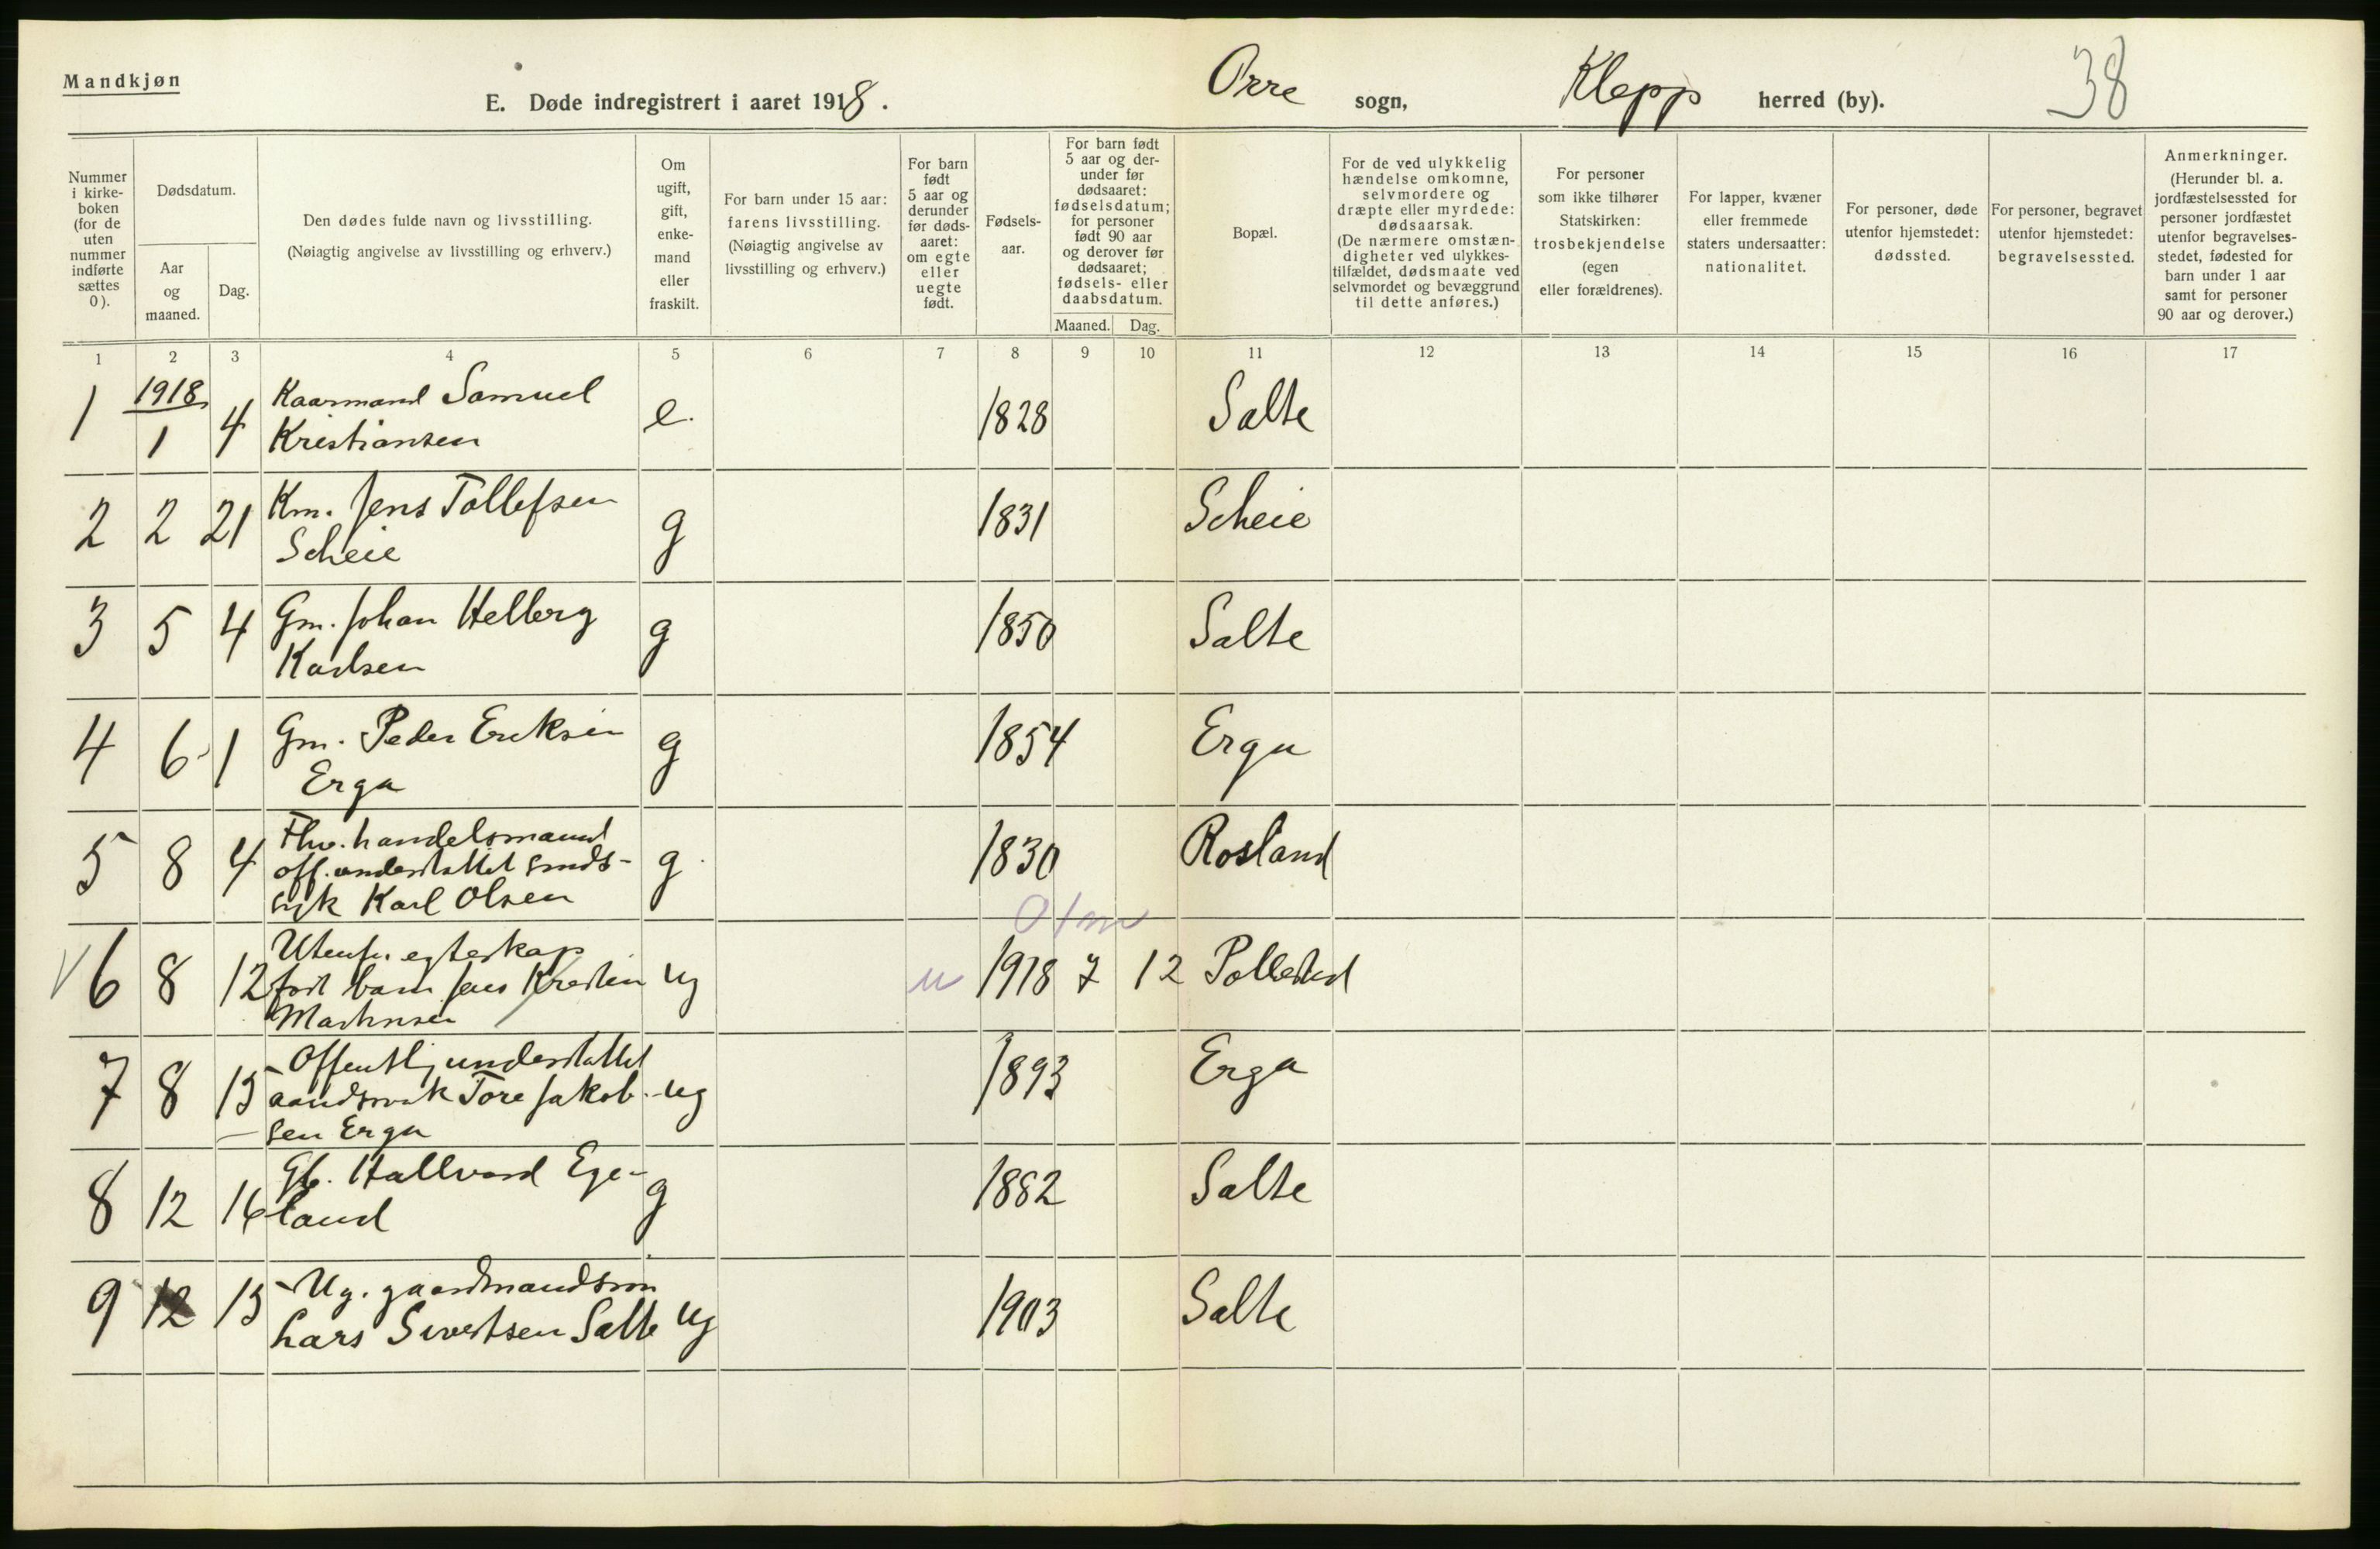 Mandkjøn
E. Døde indregistrert i aaret 1918.
Orre sogn,
Klepp herred (by).
38
Nummer
i kirke-
boken
(for de
uten
nummer
indførte
sættes
0).
Dødsdatum.
Aar
og
maaned.
Dag.
Den dødes fulde navn og livsstilling.
(Nøiagtig angivelse av livsstilling og erhverv.)
Om
ugift,
gift,
enke-
mand
eller
fraskilt.
For barn under 15 aar:
farens livsstilling.
(Nøiagtig angivelse av
livsstilling og erhverv.)
For barn
født
5 aar og
derunder
før døds-
aaret:
om egte
eller
uegte
født.
Fødsels-
aar.
For barn født
5 aar og der-
under før
dødsaaret:
fødselsdatum;
for personer
født 90 aar
og derover før
dødsaaret;
fødsels- eller
daabsdatum.
Maaned.
Dag.
Bopæl.
For de ved ulykkelig
hændelse omkomne,
selvmordere og
dræpte eller myrdede:
dødsaarsak.
(De nærmere omstæn-
digheter ved ulykkes-
tilfældet, dødsmaate ved
selvmordet og bevæggrund
til dette anføres.)
For personer
som ikke tilhører
Statskirken:
trosbekjendelse
(egen
eller forældrenes).
For lapper, kvæner
eller fremmede
staters undersaatter:
nationalitet.
For personer, døde
utenfor hjemstedet:
dødssted.
For personer, begravet
utenfor hjemstedet:
begravelsessted.
Anmerkninger.
(Herunder bl. a.
jordfæstelsessted for
personer jordfæstet
utenfor begravelses-
stedet, fødested for
barn under 1 aar
samt for personer
90 aar og derover.)
1 2 3 4 5 6 7 8 9 10 11 12 13 14 15 16 17
1918
1 1 4 Kaarmand Samuel e. 1828 Salte
Kristiansen
2 2 21 Km. Jens Tollefsen g 1831 Scheie
Scheie
3 5 4 Gm. Johan Helberg g 1850 Salte
Karlsen
4 6 1 Gm. Peder Eriksen g 1854 Erga
Erga
5 8 4 Fhv. handelsmand g. 1830 Rosland
off. understøttet sinds-
syk Karl Olsen
0 1 m
6 8 12 Utenfr. egteskap ug u 1918 7 12 Pollestad
født barn Jens Kristin
Martinsen
7 8 15 Offentlig understøttet ug 1893 Erga
aandssvak Tore Jakob-
sen Erga
8 12 16 Gb. Hallvard Ege- g 1882 Salte
land
9 12 15 Ug. gaardmandssøn ug 1903 Salte
Lars Sivertsen Salte